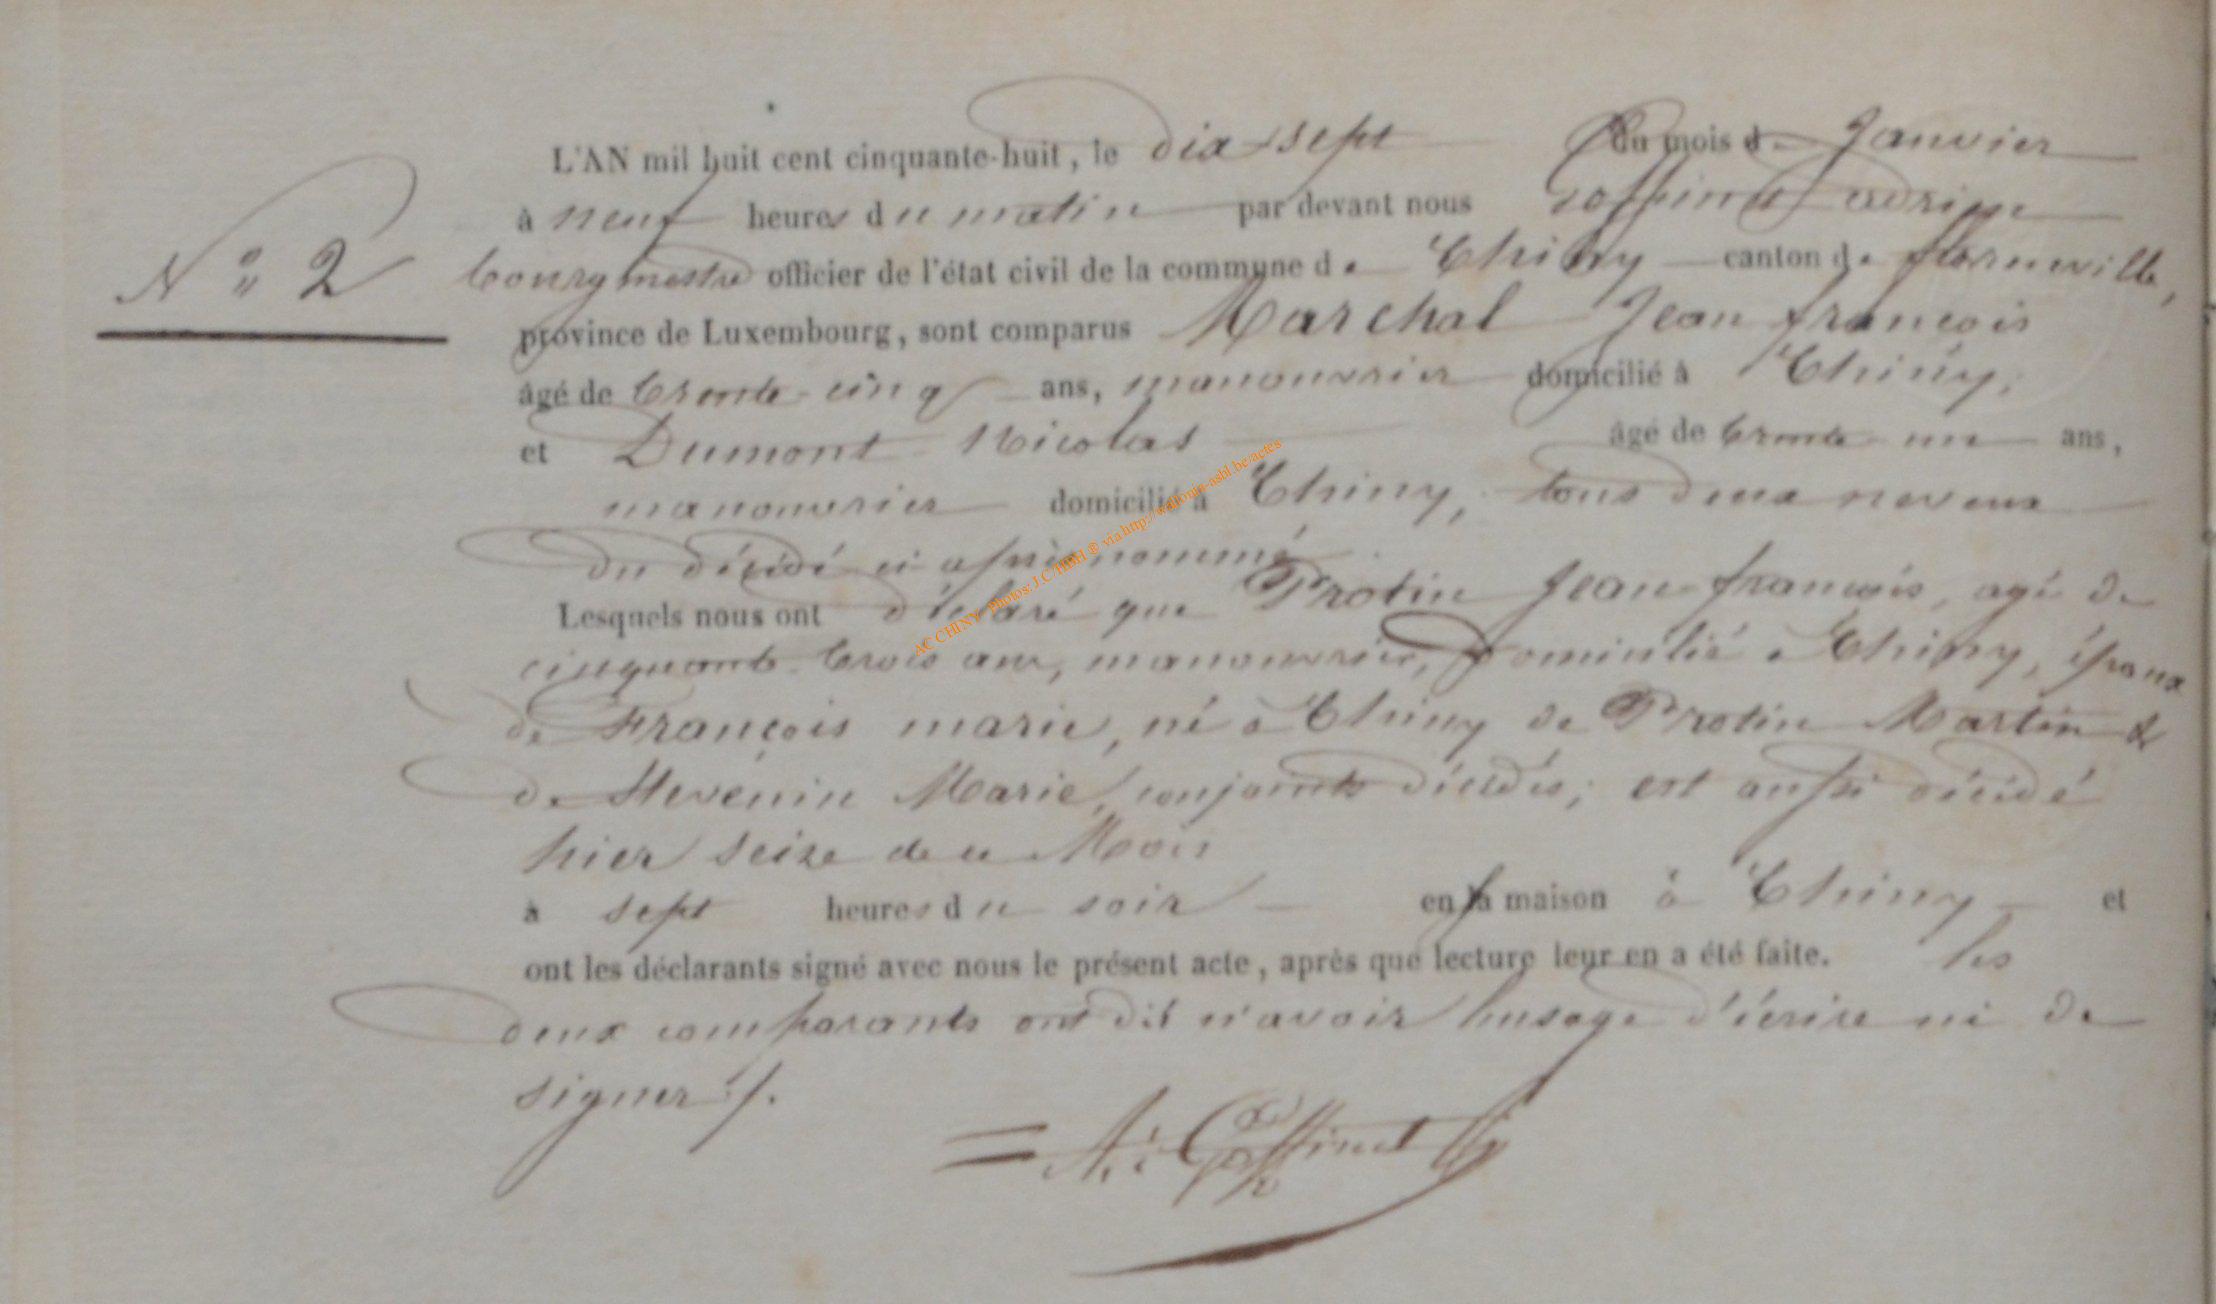 L'AN mil huit cent cinquante-huit, le dix-sept du mois de Janvier
à neuf heures du matin par devant nous Goffinet adrien
N° 2
bourgmestre officier de l'état civil de la commune de Chiny canton de florenville,
province de Luxembourg, sont comparus Marchal Jean françois
âgé de trente-cinq ans, manouvrier domicilié à Chiny,
et Dumont Nicolas âgé de trente un ans,
manouvrier domicilié à Chiny, tous deux neveux
du décédé ci après nommé
Lesquels nous ont déclaré que Protin Jean-françois, agé de
cinquante-trois ans, manouvrier, domicilié à Chiny, époux
de François marie, né à Chiny de Protin Martin &
de Stevenin Marie, conjoints décédés; est aussi décédé
hier seize de ce Mois
à sept heures du soir en sa maison à Chiny et
ont les déclarants signé avec nous le présent acte, après que lecture leur en a été faite. les
deux comparants ont dit n'avoir l'usage d'écrire ni de
signer /.
A: Goffinet
AC CHINY - Photos: J.C HBH ® via http://wallonia-asbl.be/actes